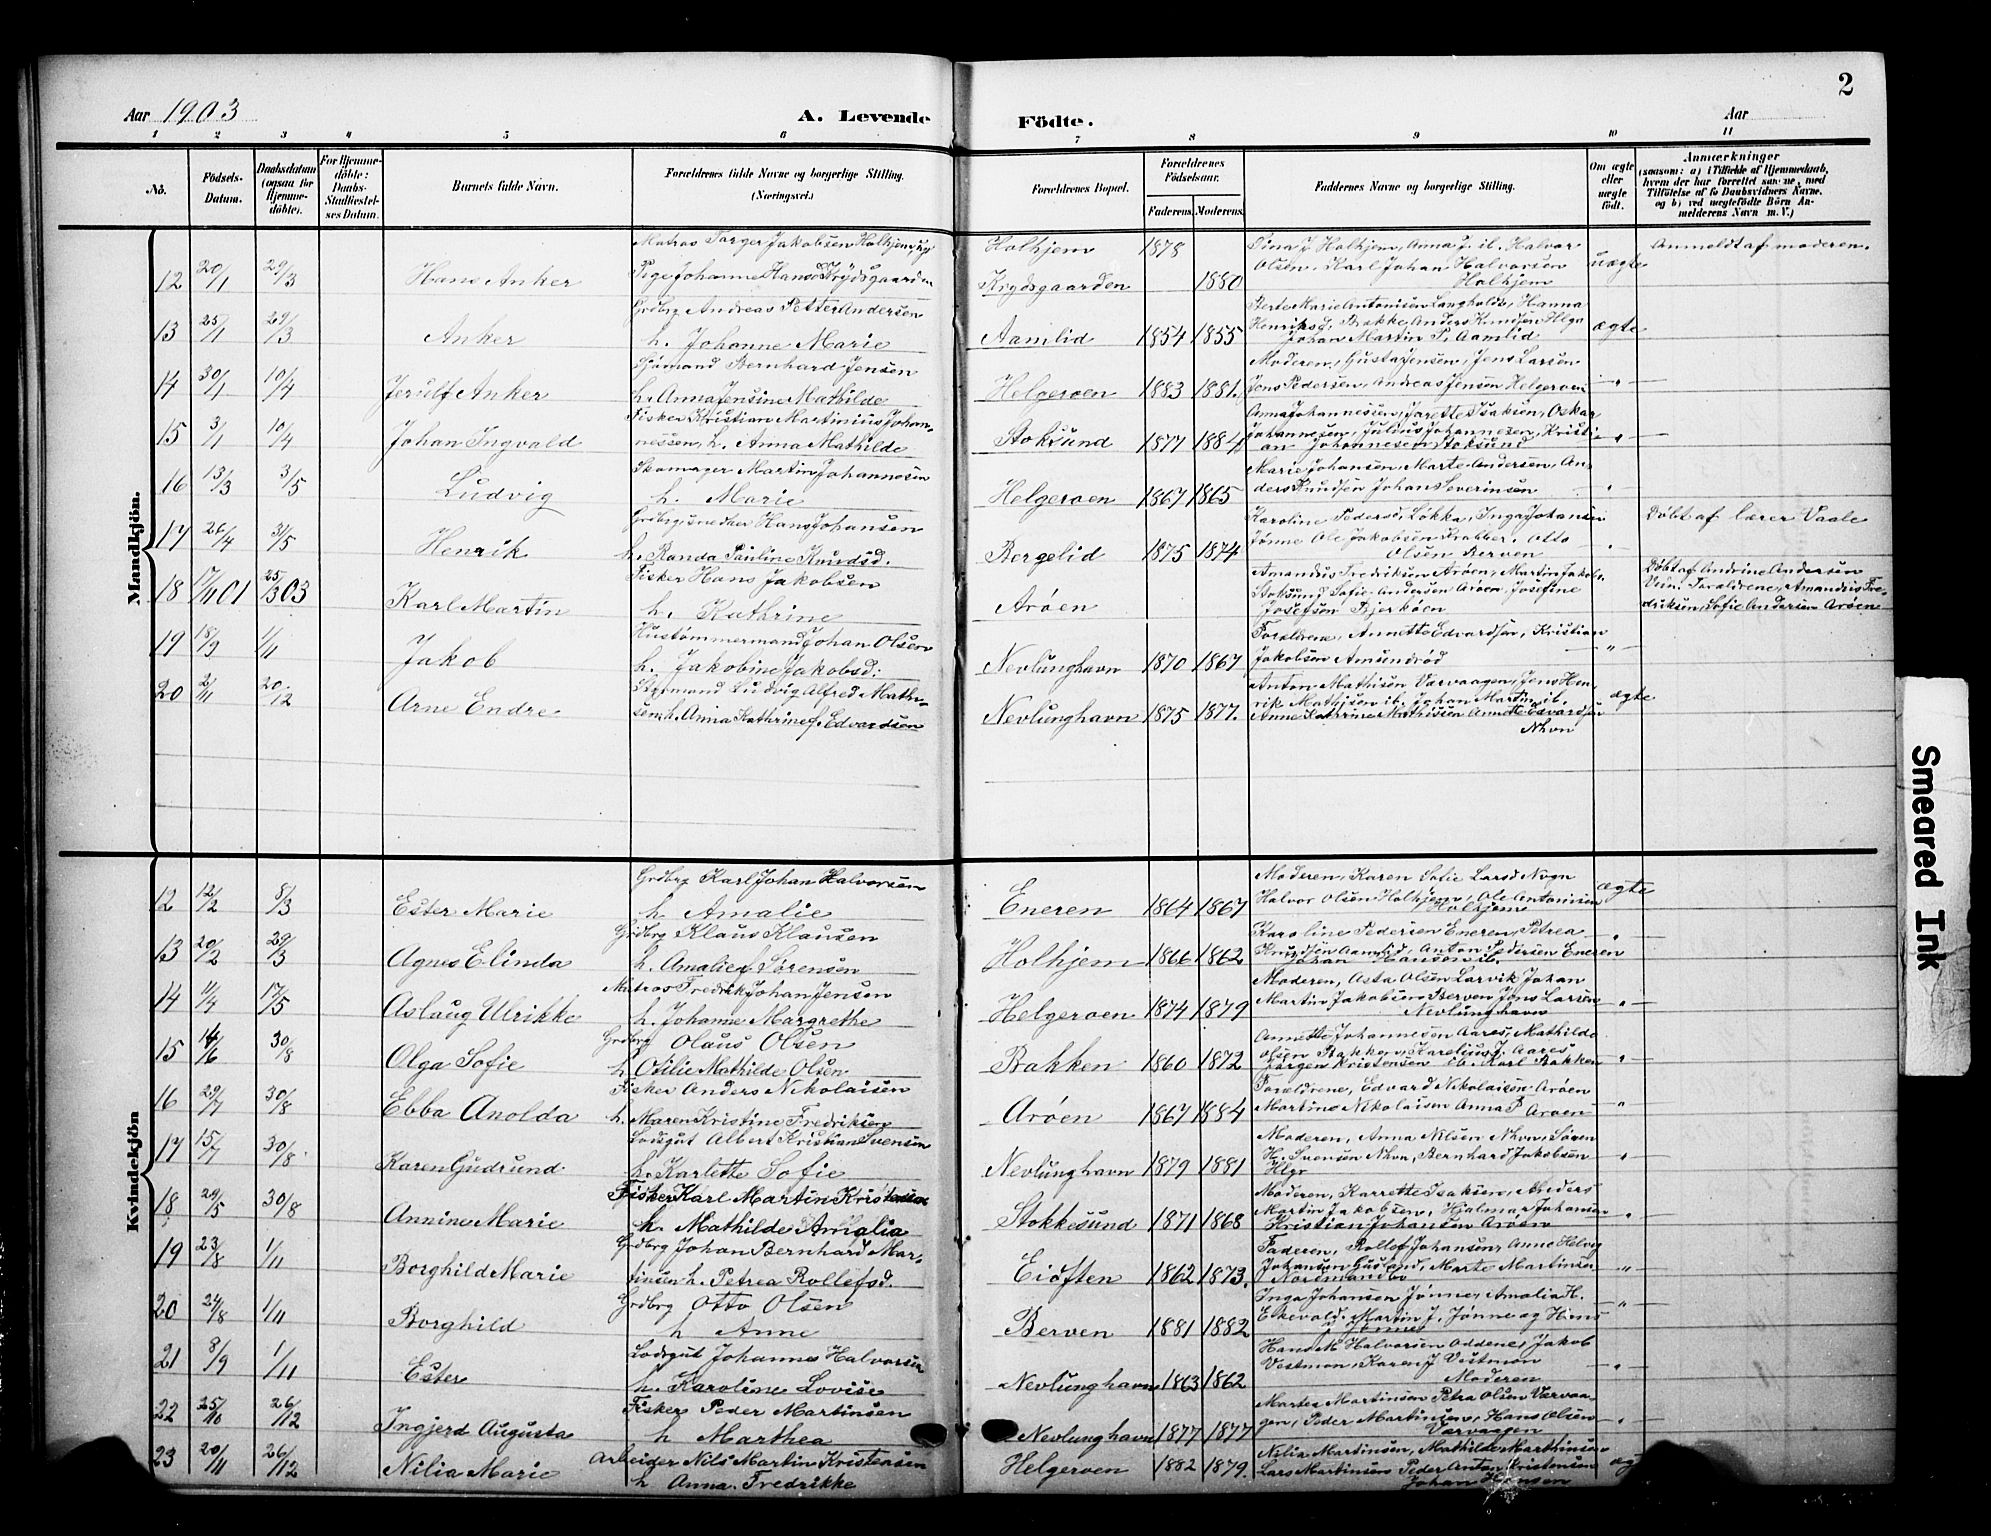 2
Aar 1903
A. Levende Födte.
Aar
1 2 3 4 5 6 7 8 9 10 11
No. Födsels-Datum. Daabsdatum (ogsaa for Hjemmedöbte). For Hjemmedöbte: Daabs-Stadfæstelses Datum. Barnets fulde Navn. Forældrenes fulde Navne og borgerlige Stilling. (Næringsvei.) Forældrenes Bopæl. Forældrenes Födselsaar. Faderens. Moderens. Faddernes Navne og borgerlige Stilling. Om ægte eller uægte födt. Anmærkninger (saasom: a) i Tilfælde af Hjemmedaab, hvem der har forrettet samme, med Tilföielse af to Daabsvidners Navne, og b) ved uægtefödte Börn Anmelderens Navn m. V.)
Mandkjön.
12 20/1 29/3 Hans Anker Matros Torger Jakobsen Holhjem, og Pige Johanne Hansd Krydsgaarden Holhjem Krydsgaarden 1878 1880 Tina J. Holhjem, Anna J. ib. Halvor Olsen, Karl Johan Halvorsen Holhjem uægte Anmeldt af moderen.
13 25/1 29/3 Anker Grdbrg Andreas Petter Andersen h. Johanne Marie Aamlid 1854 1855 Berte Marie Antonisen Langholdt, Hanna Henriksd, Bakke, Anders Knudsen Helg. Johan Martin P. Aamlid ægte
14 30/1 10/4 Jerulf Anker Sjömand Bernhard Jensen h. Anna Jensine Mathilde Helgeroen 1883 1881. Moderen, Gusta Jensen, Jens Larsen Jens Pedersen, Andreas Jensen Helgeroen — " —
15 3/1 10/4 Johan Ingvald Fisker Kristian Martinius Johannessen, h. Anna Mathilde Stoksund 1877 1884 Anna Johannessen, Jarette Isaksen, Oskar Johannesen, Julius Johannesen, Kristian Johannesen Stoksund — " —
16 13/3 3/5 Ludvig Skomager Martin Johannesen h. Marie Helgeroen 1867 1865 Marie Johansen, Marte Andersen, Anders Knudsen Johan Severinsen "
17 26/4 31/5 Henrik Grdbrg, snedker Hans Johansen h. Randa Pauline Knudsd. Bergelid 1875 1874 Karoline Pedersd, Lökka, Inga Johansen Jönne Ole Jakobsen Krabber, Otto Olsen Berven " Döbt af lærer Vaale
18 17/11 01 25/3 03 Karl Martin Fisker Hans Jakobsen h. Kathrine Aröen Amandus Fredriksen Aröen, Martin Jakobs. Stoksund Sofie Andersen Aröen Josefine Josefsen Bjerköen Döbt af Andrine Andersen Vidn. Foraldrene, Amandus Fredriksen, Sofie Andersen Aröen
19 18/9 1/11 Jakob Hustömmermand Johan Olsen h. Jakobine Jakobsd: Nevlunghavn 1870 1867 Foraldrene, Annette Edvardsen, Kristian Jakobsen Amundröd — " —
20 2/11 20/12 Arne Endre Styrmand Ludvig Alfred Mathisen, h. Anna Kathrine f. Edvardsen Nevlunghavn 1875 1877. Anton Mathisen Varvaagen, Jens Henrik Mathisen ib. Johan Martin ib. Anne Kathrine Mathissen Annette Edvardsen Nhvn ægte
Kvindekjön
12 12/2 8/3 Ester Marie Grdbrg Karl Johan Halvorsen h Amalie Eneren 1864 1867 Moderen, Karen Sofie Larsd Nvgn Halvor Olsen Holhjem, Ole Antonisen Holhjem ægte
13 20/2 29/3 Agnes Elinda Grdbrg Klaus Klausen h. Amalie f Sörensen Holhjem 1866 1862 Karoline Pedersen Eneren, Petrea Knudsen Aamlid, Anton Pedersen Eneren Johan Hansen ib. — " —
14 11/4 17/5 Aslaug Ulrikke Matros Fredrik Johan Jensen h. Johanne Margrethe Helgeroen 1874 1879 Moderen, Asta Olsen Larvik Johan Martin Jakobsen Berven Jens Larsen Nevlunghavn — " —
15 14/6 30/8 Olga Sofie Grdbrg Olaus Olsen h Otilie Mathilde Olsen Bakken 1860 1872 Annette Johannesen Aares, Mathilde Olsen Bakken, Karelius J. Aares Jörgen Kristensen ib. Karl Bakken — " —
16 29/7 30/8 Ebba Anolda Fisker Anders Nikolaisen h. Maren Kristine Fredriksen Aröen 1867 1884 Foraldrene, Edvard Nikolaisen Aröen Martine Nikolaisen Anna P Aröen "
17 15/7 30/8 Karen Gudrund Lodsgut Albert Kristian Svensen h. Karlette Sofie Nevlunghavn 1879 1881 Moderen, Anna Nilsen Nhvn, Sören H. Svensen Nhvn, Bernhard Jakobsen Hlgr — " —
18 29/5 30/8 Annine Marie Fisker Karl Martin Kristensen h. Mathilde Amalia Stokkesund 1871 1868 Moderen, Karrette Isaksen, Anders Martin Jakobsen, Hjalmar Johansen Kristian Johansen Aröen — " —
19 23/8 1/11 Borghild Marie Grdbrg Johan Bernhard Martinsen h. Petrea Rollefsd. Eiöften 1862 1873. Faderen, Rollef Johansen, Anne Helvig Johansen Gusland, Marte Martinsen Nordmandbo — " —
20 24/8 1/11 Borghild Grdbrg Otto Olsen h Anne Berven 1881 1882 Inga Johansen Jönne, Amalia H. Ekevold. Martin J. Jönne og Hans J Jönne — " —
21 8/9 1/11 Ester Lodsgut Johannes Halvorsen h. Karoline Lovise Nevlunghavn 1863 1862 Hans M Halvorsen Oddene, Jakob Vestmon, Karen J Vestmon Moderen — " —
22 25/10 26/12 Ingjerd Augusta Fisker Peder Martinsen h Marthea Nevlunghavn 1877 1877 Martes Martinsen Petra Olsen Varvaagen, Peder Martinsen, Hans Olsen Varvaagen — " —
23 20/11 26/12 Nilia Marie Arbeider Nils Martin Kristensen h Anna Fredrikke Helgeroen 1882 1879. Nilia Martinsen, Mathilde Marthinsen Lars Martinsen Peder Anton Kristensen Johan Hansen
Smeared Ink